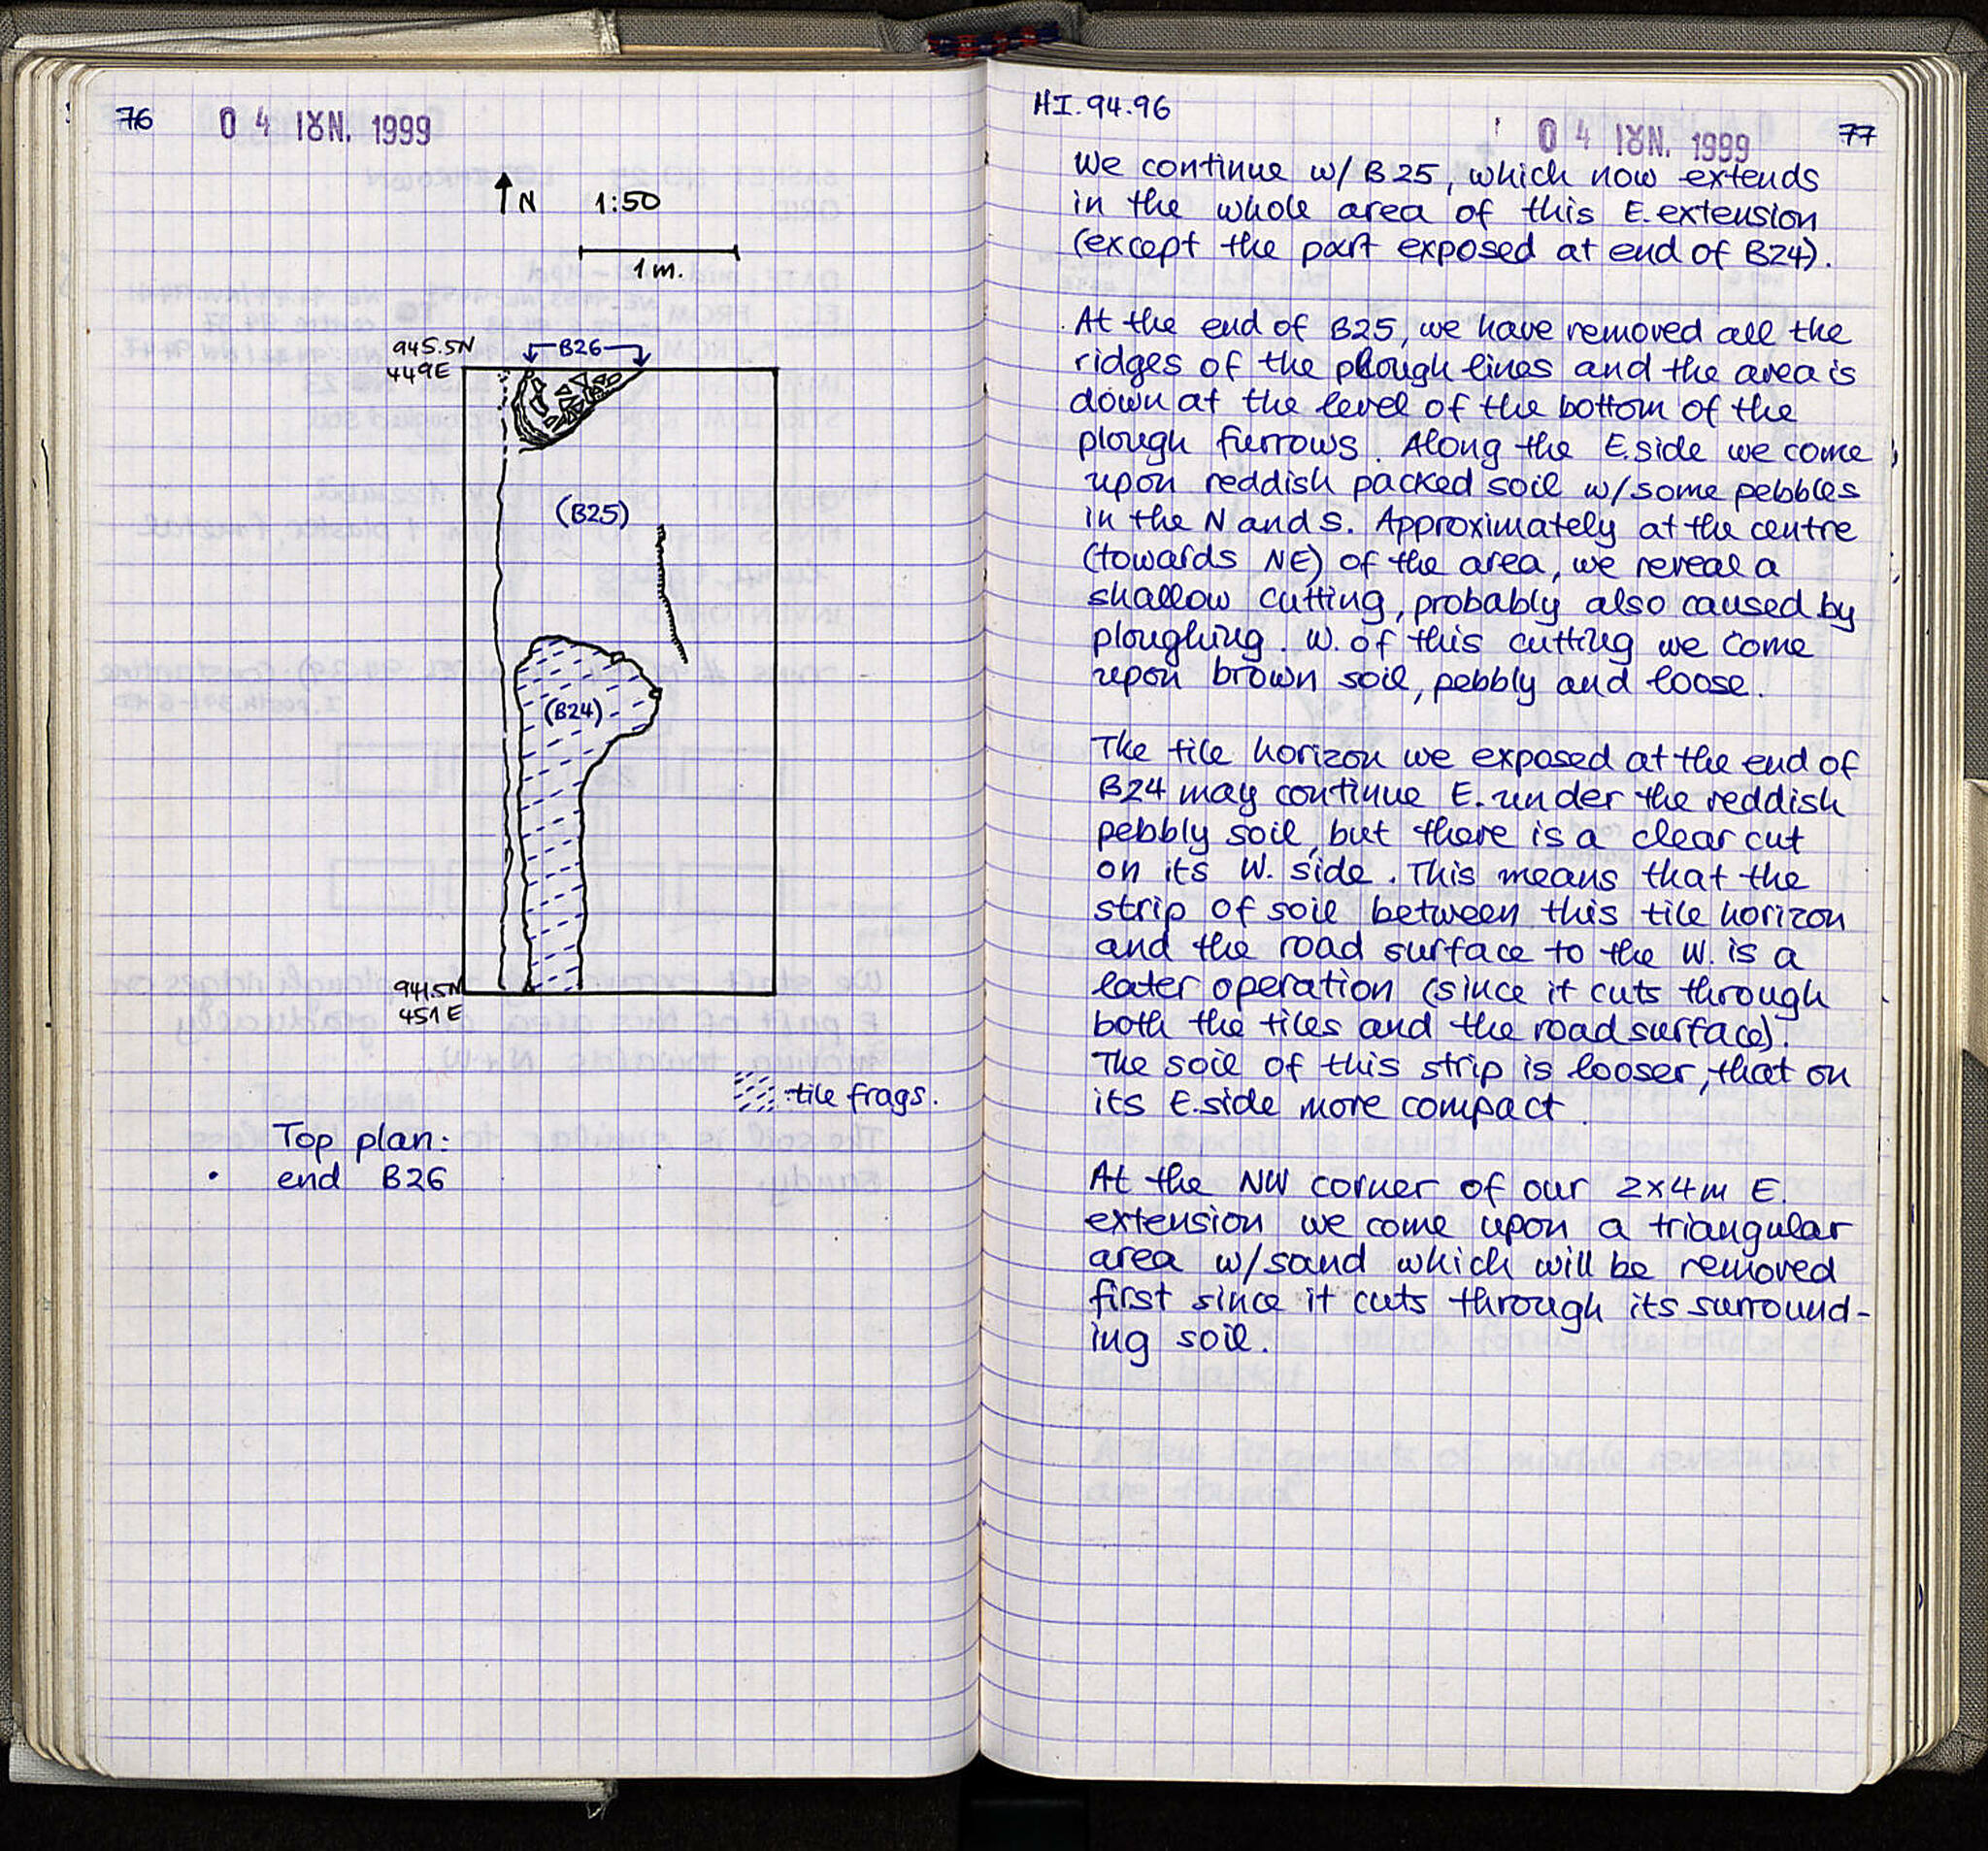 76
0 4 ΙȢΝ. 1999
N 1:50
1 m.
945.5N
449E
B26
(B25)
(B24)
941.5N
451E
: tile frags.
Top plan:
• end B26
HI.94.96
0 4 ΙȢΝ. 1999
77
We continue w/ B25, which now extends
in the whole area of this E. extension
(except the part exposed at end of B24).
At the end of B25, we have removed all the
ridges of the plough lines and the area is
down at the level of the bottom of the
plough furrows. Along the E. side we come
upon reddish packed soil w/ some pebbles
in the N and S. Approximately at the centre
(towards NE) of the area, we reveal a
shallow cutting, probably also caused by
ploughing. W. of this cutting we come
upon brown soil, pebbly and loose.
The tile horizon we exposed at the end of
B24 may continue E. under the reddish
pebbly soil, but there is a clear cut
on its W. side. This means that the
strip of soil between this tile horizon
and the road surface to the W. is a
later operation (since it cuts through
both the tiles and the road surface).
The soil of this strip is looser, that on
its E. side more compact.
At the NW corner of our 2x4m E.
extension we come upon a triangular
area w/ sand which will be removed
first since it cuts through its surround-
ing soil.